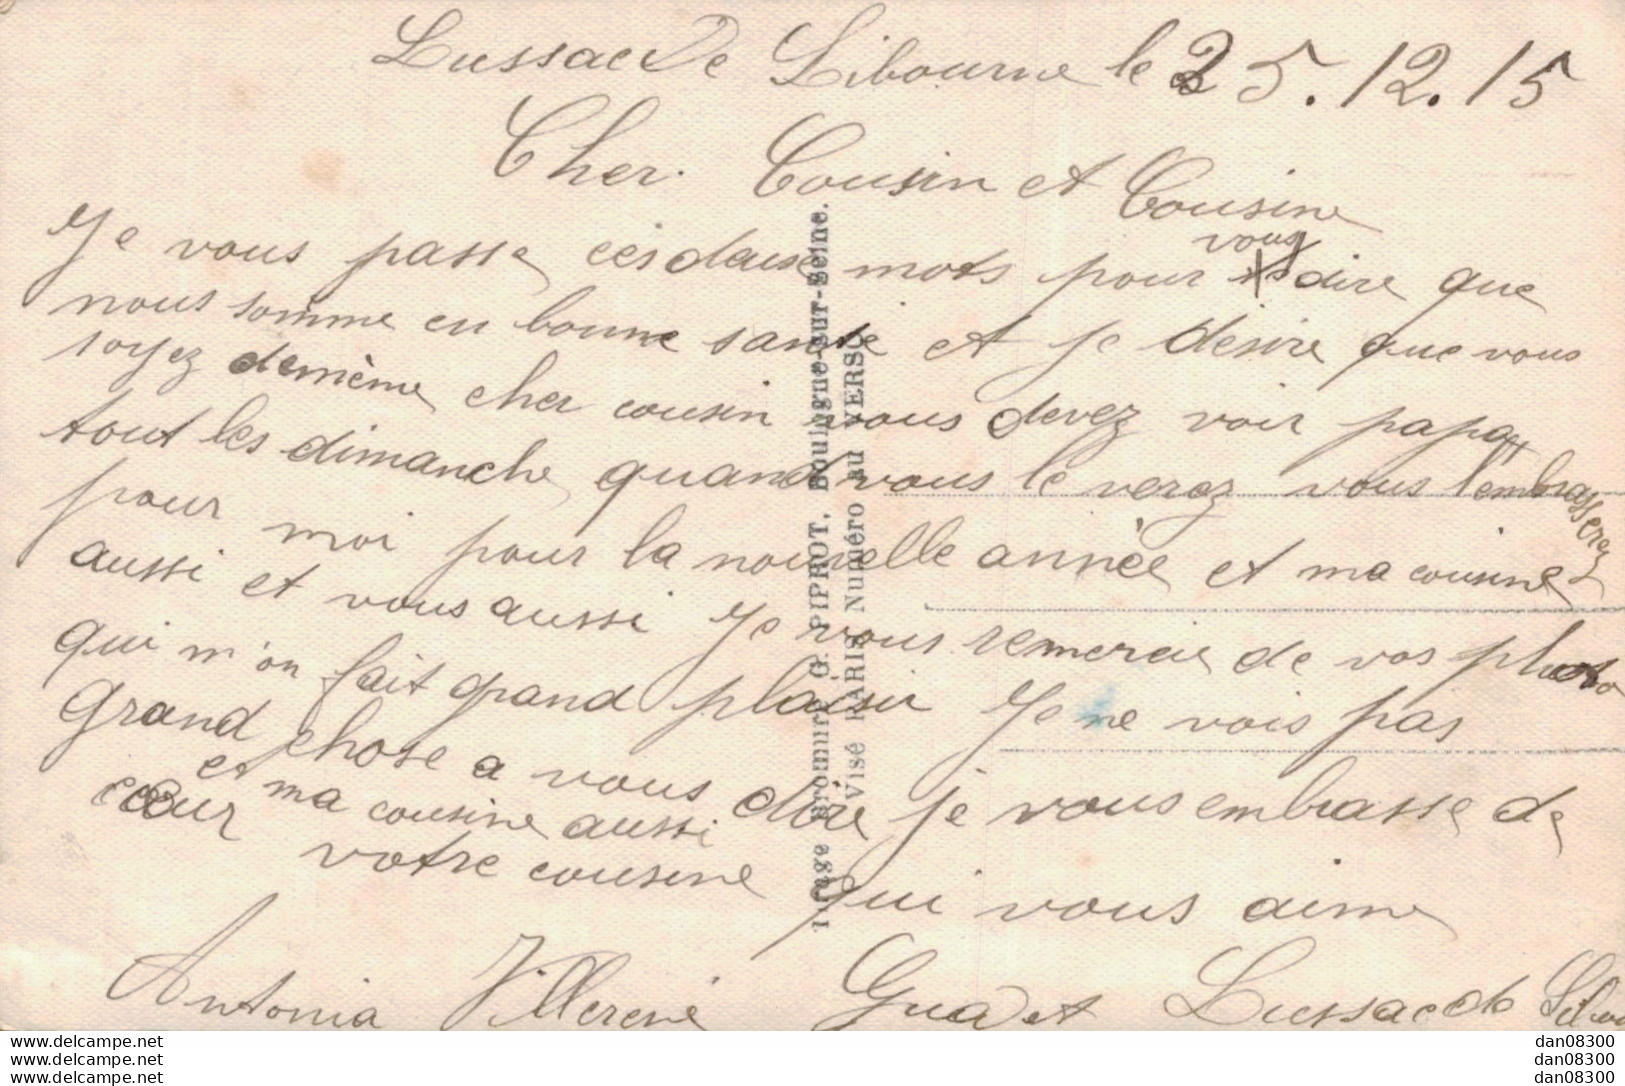 Lussac De Libourne le 25.12.15
Cher. Cousin et Cousine
Je vous passe ces deuse mots pour vous dire que
nous somme en bonne sante et je désire que vous
soyez demème cher cousin vous devez voir papa
tout les dimanche quand vous le verez vous l'embrasserez
pour moi pour la nouvelle année et ma cousine
aussi et vous aussi Je vous remercie de vos photo
qui m'on fait grand plaisir Je ne vois pas
grand chose a vous dire je vous embrasse de
et ma cousine aussi
cœur votre cousine qui vous aime
Antonia Lussac de
Tirage Bromure G. PIPROT, Boulogne-sur-Seine.
Visé PARIS Numéro au VERSO
www.delcampe.net
www.delcampe.net
www.delcampe.net
dan08300
dan08300
dan08300